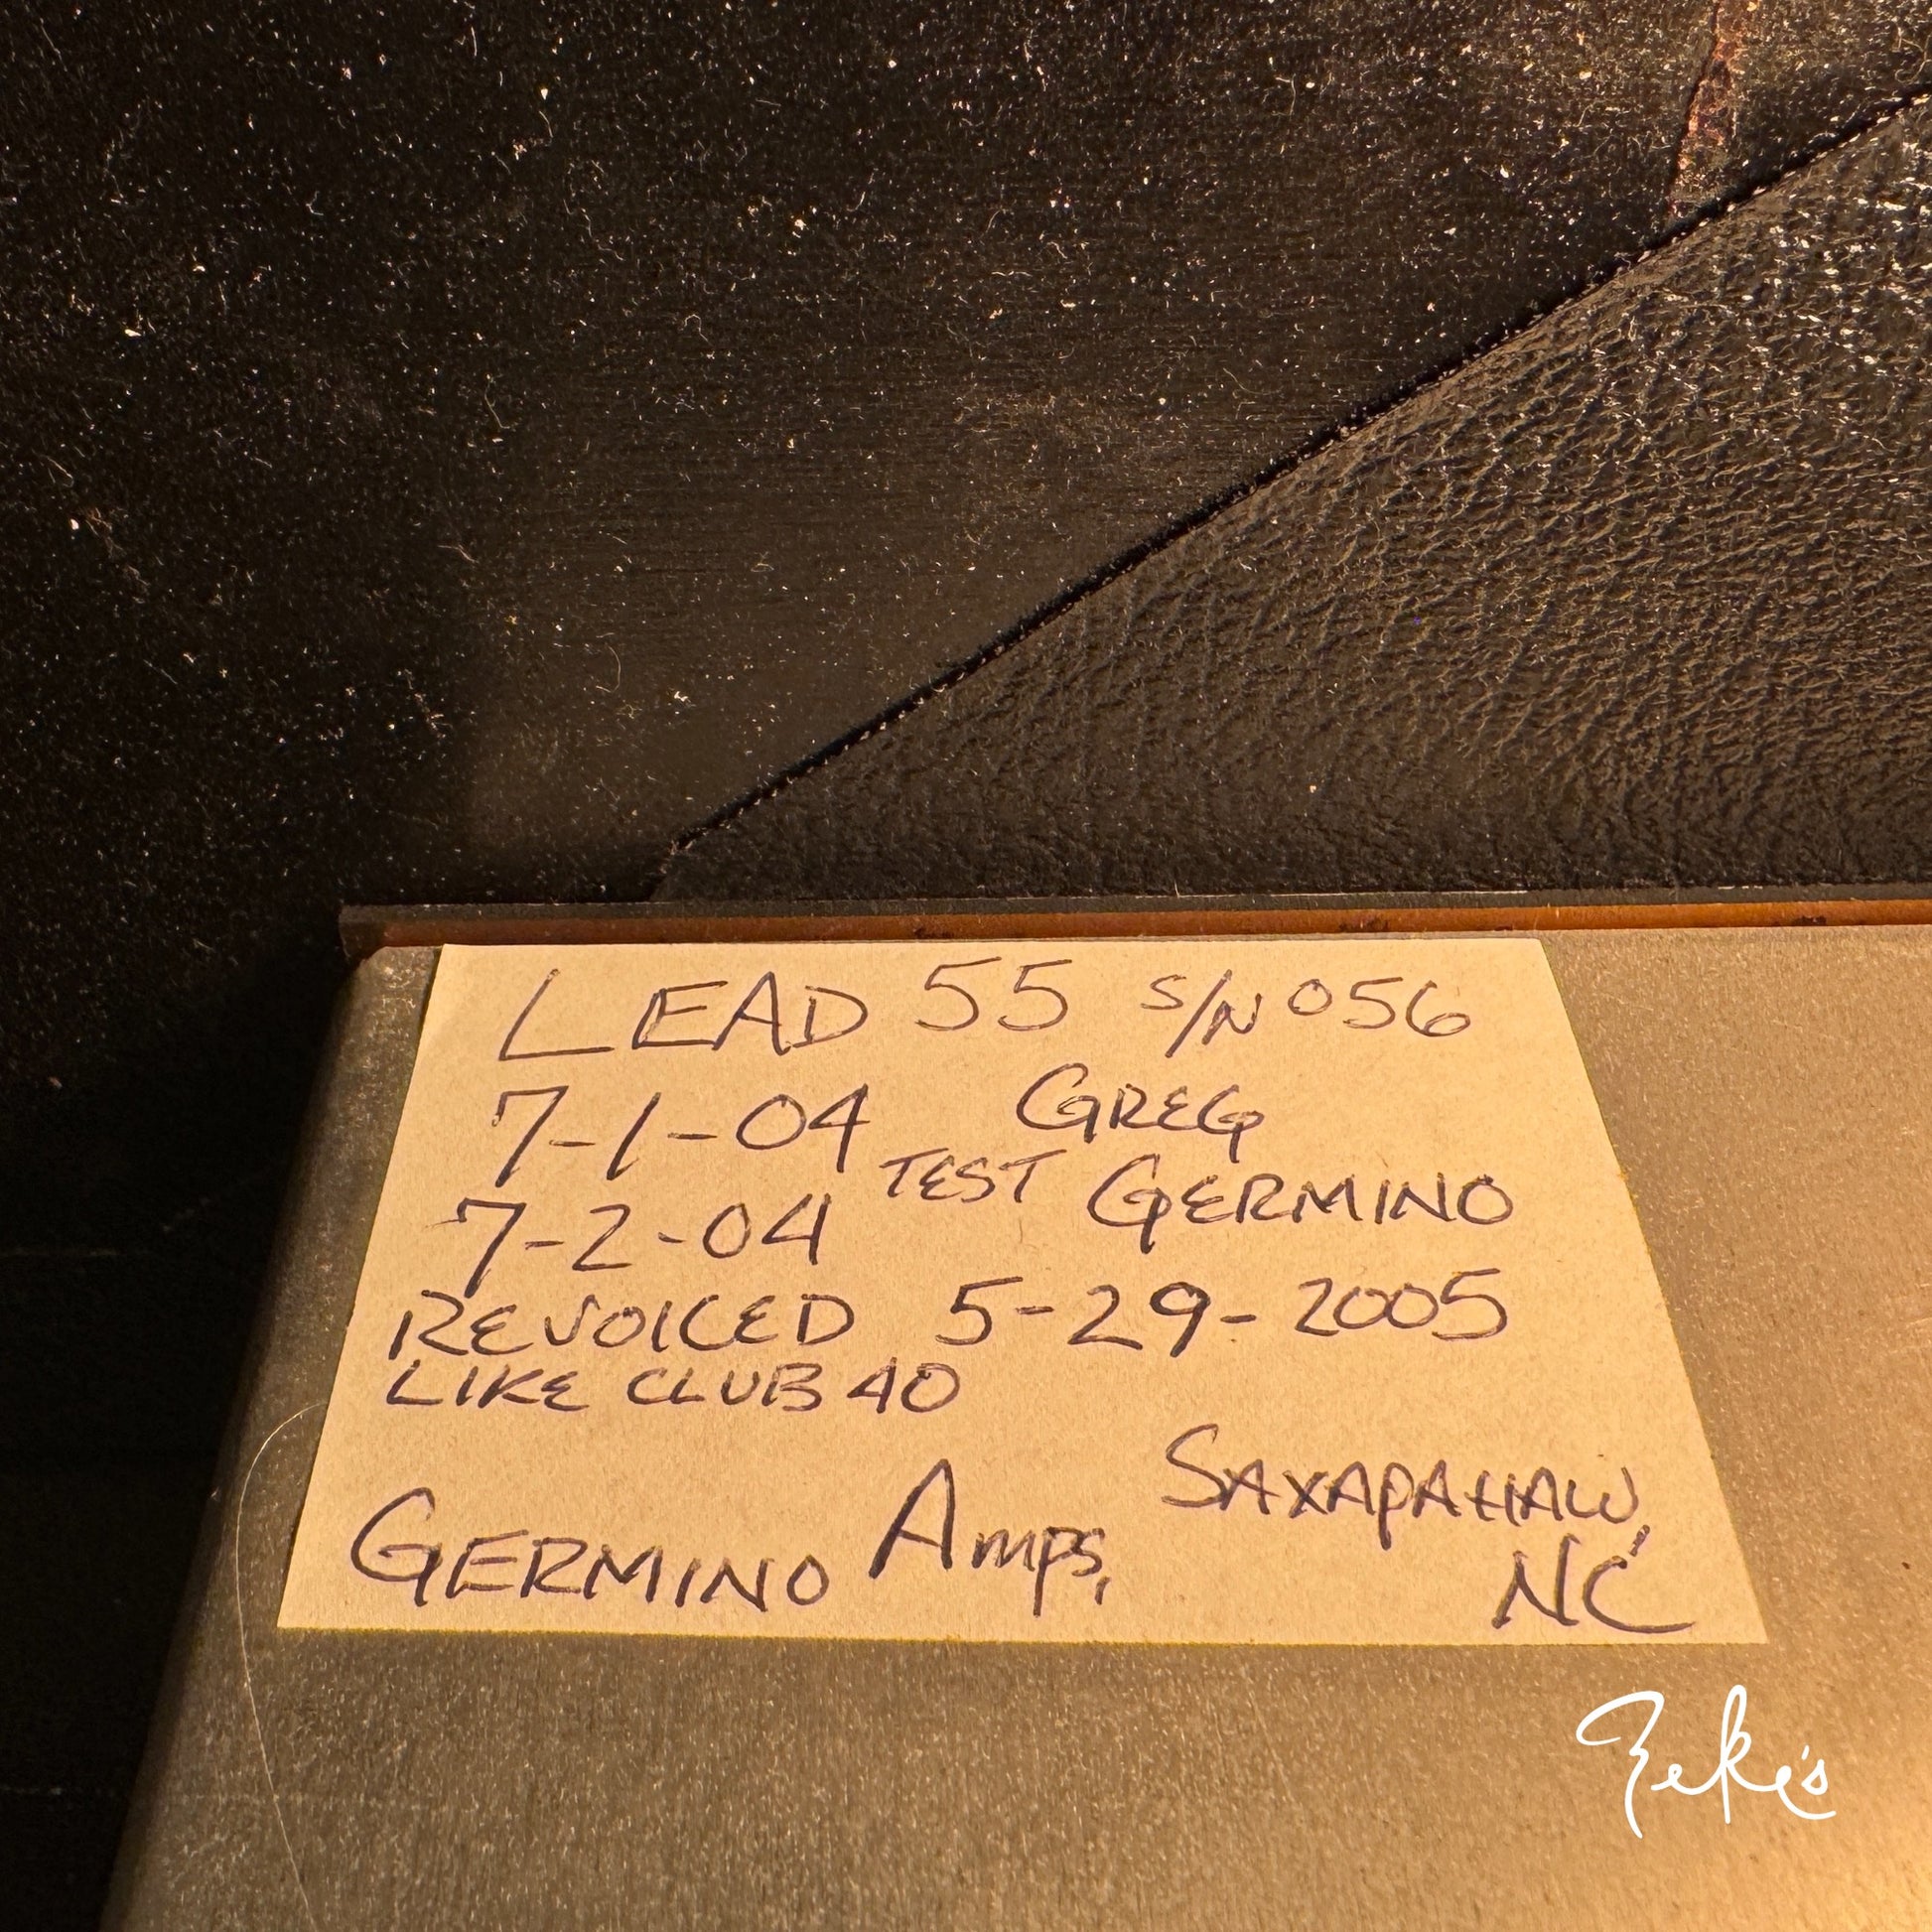 LEAD 55 S/N 056
7-1-04 GREG
7-2-04 TEST GERMINO
REVOICED 5-29-2005
LIKE CLUB 40
GERMINO Amps, SAXAPAHAW,
NC
Zeke's